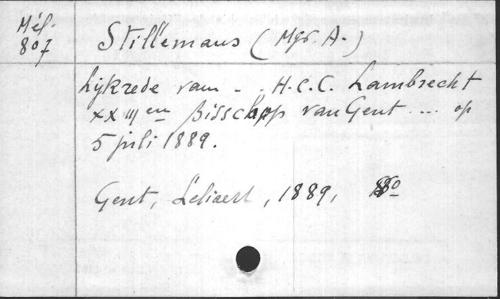 Mél.
807
Stillemans (Mgr. A.)
Lijkrede van - . H.C.C. Lambrecht
XXIIIen Bisschop van Gent ... op
5 juli 1889.
Gent, Leliaert, 1889, 8o